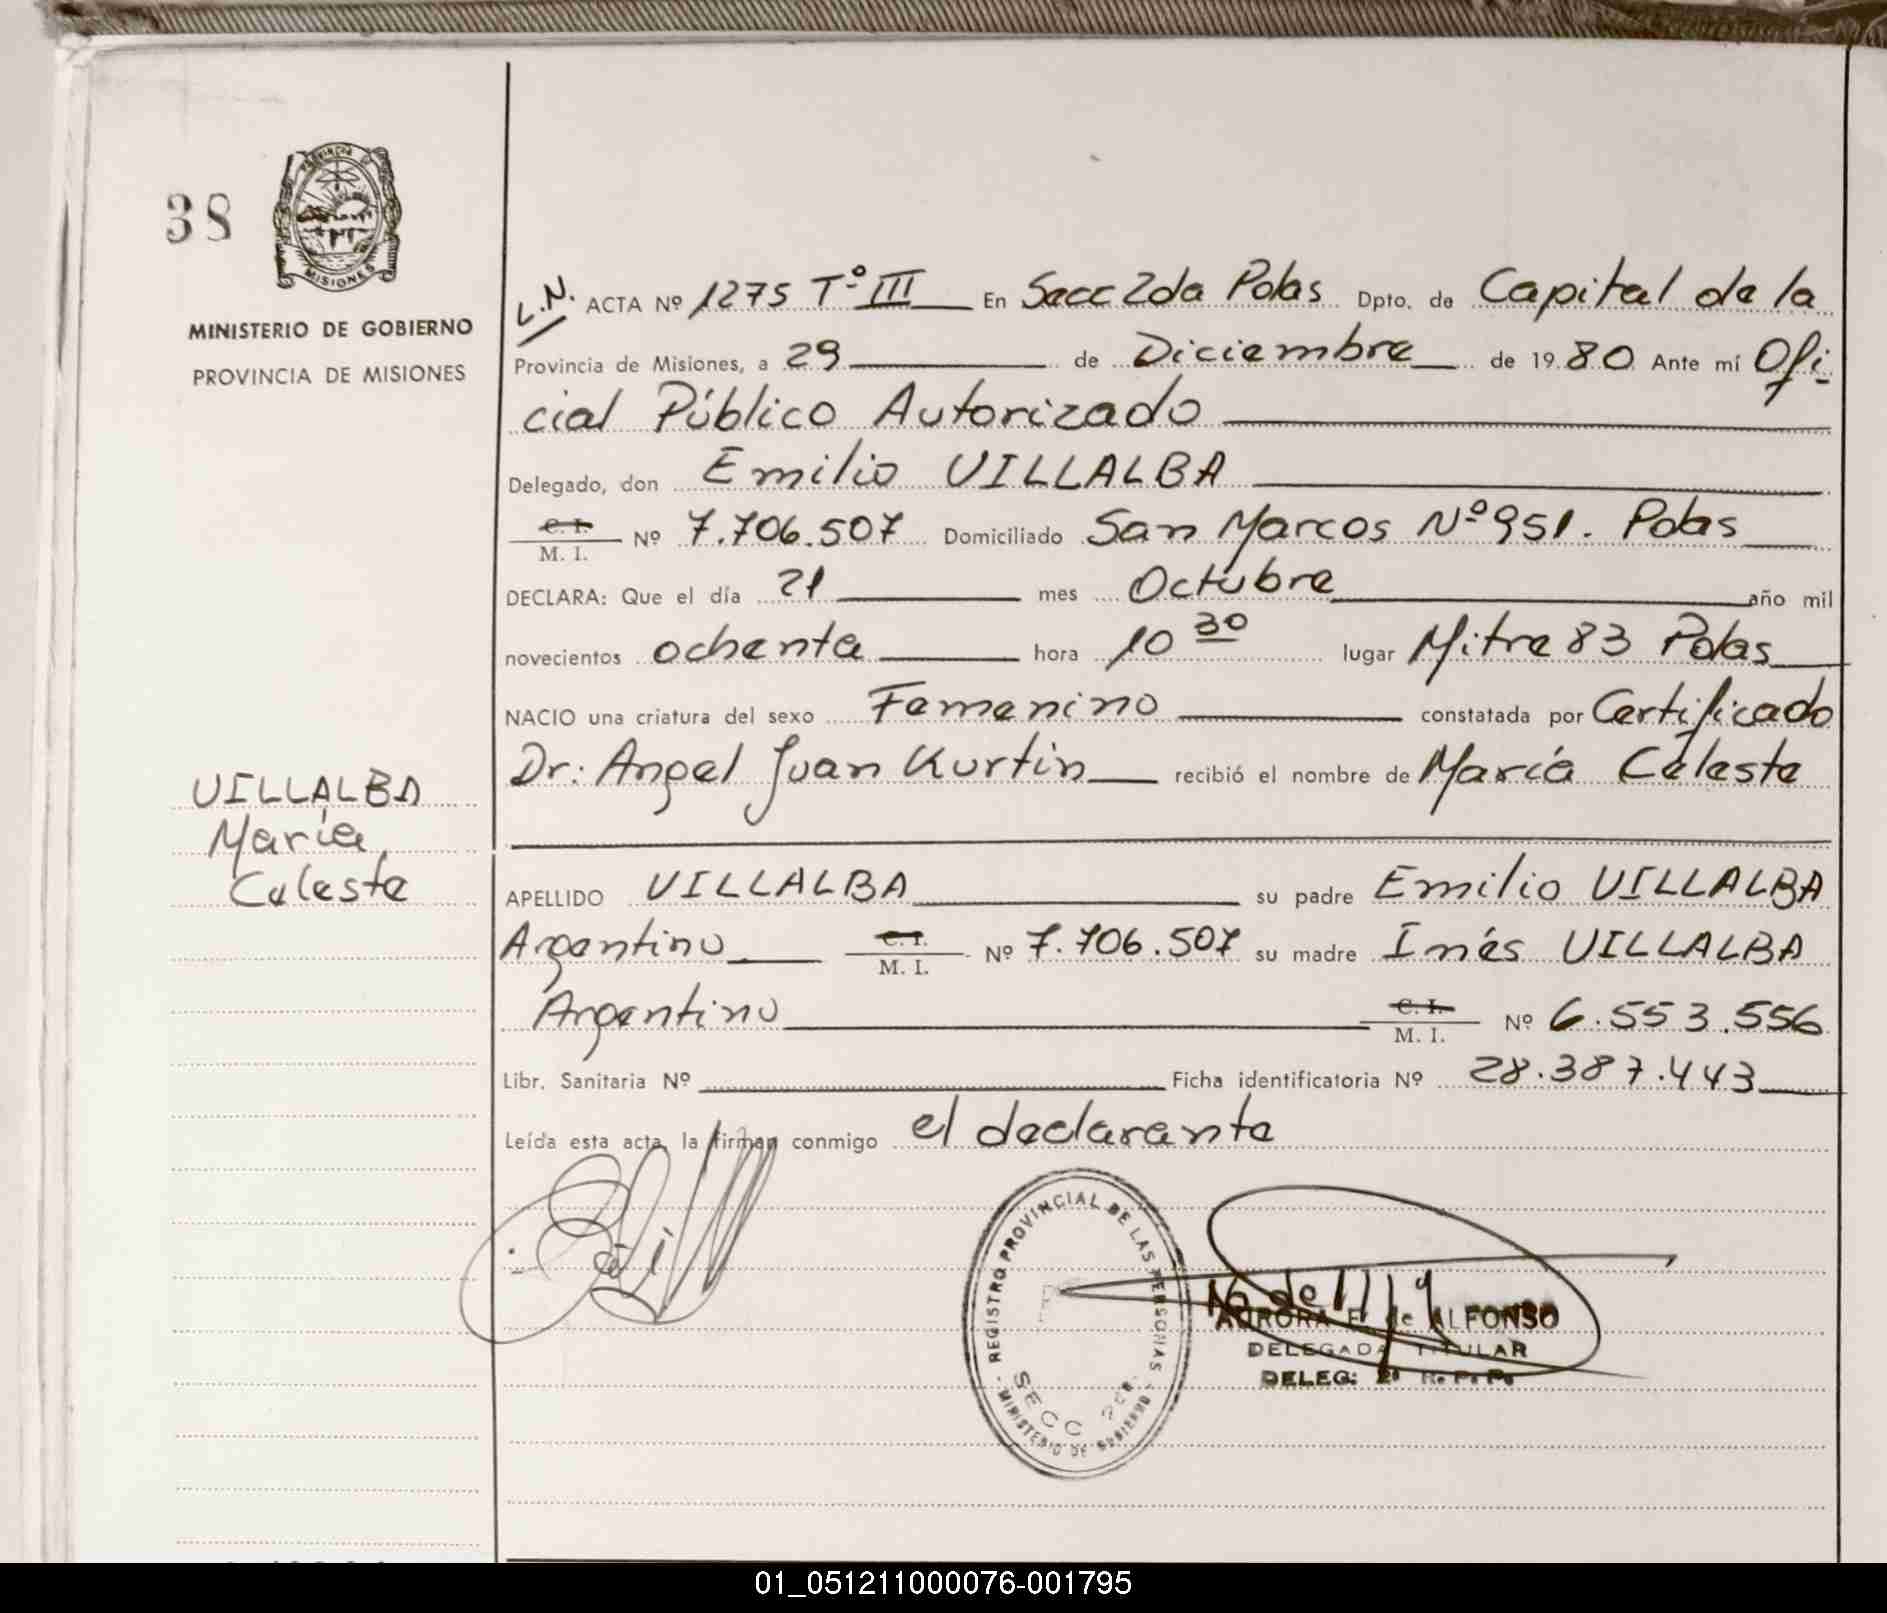 38
PROVINCIA DE
MISIONES
MINISTERIO DE GOBIERNO
PROVINCIA DE MISIONES
L.N. ACTA Nº 1275 Tº III En Secc 2da Pdas Dpto. de Capital de la
Provincia de Misiones, a 29 de Diciembre de 1980 Ante mí Ofi-
cial Público Autorizado
Delegado, don Emilio VILLALBA
C. I.
M. I. Nº 7.706.507 Domiciliado San Marcos Nº 951. Pdas
DECLARA: Que el día 21 mes Octubre año mil
novecientos ochenta hora 10 30 lugar Mitre 83 Pdas
NACIO una criatura del sexo Femenino constatada por Certificado
Dr: Angel Juan Kurtin recibió el nombre de María Celeste
VILLALBA
María
Celeste
APELLIDO VILLALBA su padre Emilio VILLALBA
Argentino C. I. M. I. Nº 7.706.507 su madre Inés VILLALBA
Argentino C. I. M. I. Nº 6.553.556
Libr. Sanitaria Nº Ficha identificatoria Nº 28.387.443
Leída esta acta, la firman conmigo el declarante
REGISTRO PROVINCIAL DE LAS PERSONAS
SECC 2da.
- MINISTERIO DE GOBIERNO -
AURORA E. de ALFONSO
DELEGADA TITULAR
DELEG: 2ª R. P. P.
01_051211000076-001795